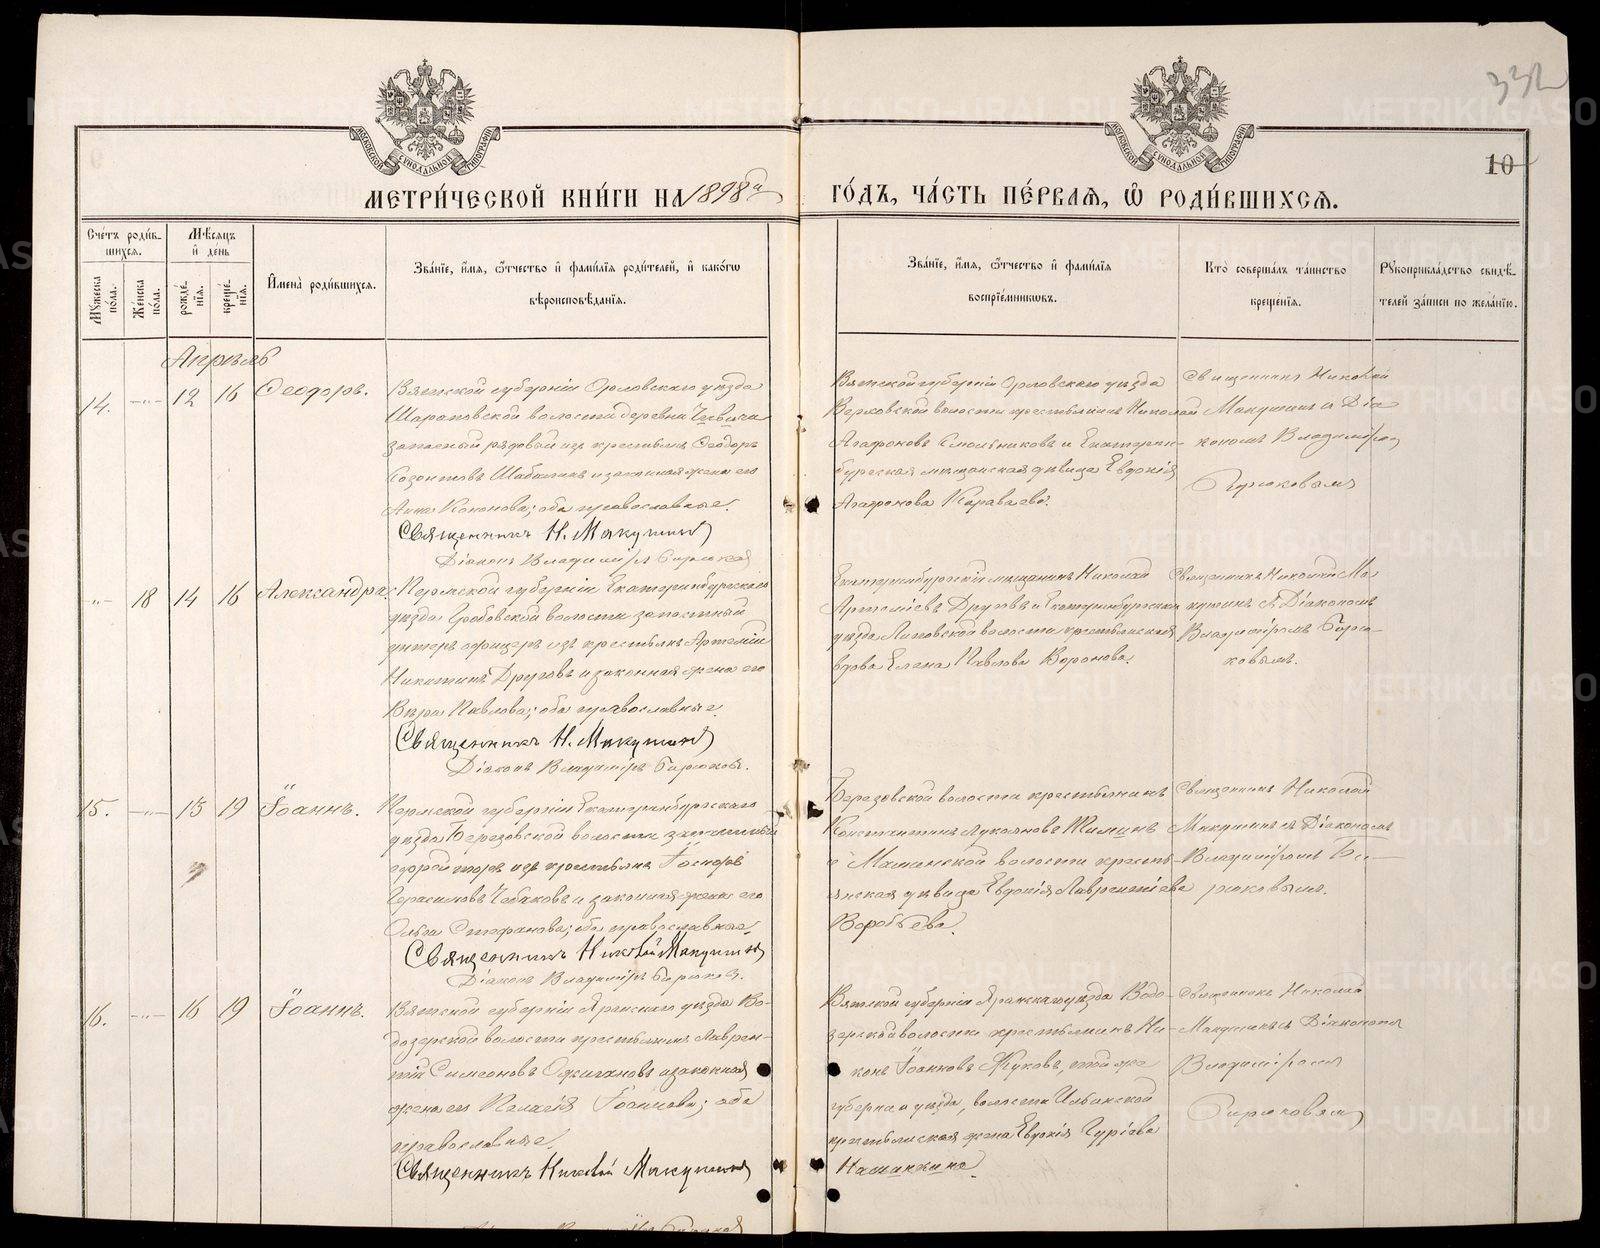 332
10
МОСКОВСКОЙ СѴНОДАЛЬНОЙ ТИПОГРАФІИ
МОСКОВСКОЙ СѴНОДАЛЬНОЙ ТИПОГРАФІИ
МЕТРИ́ЧЕСКОЙ КНИ́ГИ НА 1898й
ГО́ДЪ, ЧА́СТЬ ПЕ́РВАЯ, Ѽ РОДИ́ВШИХСЯ.
Сче́тъ роди́вшихся.
Мꙋ́жеска по́ла.
Же́нска по́ла.
Мѣ́сяцъ и҆ де́нь
рожде́нїѧ.
креще́нїѧ.
И҆мена̀ роди́вшихсѧ.
Зва́нїе, и҆́мѧ, ѻ҆́тчество и҆ фами́лїѧ роди́телей, и҆ како́гѡ
вѣроисповѣ́данїѧ.
Зва́нїе, и҆́мѧ, ѻ҆́тчество и҆ фами́лїѧ
воспрїе́мникѡвъ.
Кто̀ соверша́лъ та́инство
креще́нїѧ.
Рꙋкоприкла́дство свидѣ́-
телей за́писи по жела́нїю.
Апрѣль
14. -„- 12 16 Ѳеодоръ.
Вятской губерніи Орловскаго уѣзда
Шараповской волости деревни
запасный рядовой изъ крестьянъ Ѳеодоръ
Созонтовъ Шабалинъ и законная жена его
Анна Кононова; оба православные.
Священникъ Н. Макушинъ
Діаконъ Владиміръ Бирюковъ
Вятской губерніи Орловскаго уѣзда
Верховской волости крестьянинъ Николай
Агафоновъ Смольниковъ и Екатерин-
бургская мѣщанская дѣвица Евдокія
Агафонова Караваева.
Священникъ Николай
Макушинъ съ Діа
кономъ Владиміром
Бирюковымъ
-„- 18 14 16 Александра.
Пермской губерніи Екатеринбургскаго
уѣзда Гробовской волости запасный
унтеръ офицеръ изъ крестьянъ Артемій
Никитинъ Друговъ и законная жена его
Вѣра Павлова; оба православные.
Священникъ Н. Макушинъ
Діаконъ Владиміръ Бирюковъ.
Екатеринбургскій мѣщанинъ Николай
Артеміевъ Друговъ и Екатеринбургскаго
уѣзда Липовской волости крестьянская
вдова Елена Павлова Воронова.
Священникъ Николай Ма
кушинъ съ Діакономъ
Владиміромъ Бирю-
ковымъ.
15. -„- 15 19 Іоаннъ.
Пермской губерніи Екатеринбургскаго
уѣзда Березовской волости запасный
изъ крестьянъ
Герасимовъ Чебаковъ и законная жена его
Ольга Стефанова; оба православные.
Священникъ Николай Макушинъ
Діаконъ Владиміръ Бирюковъ.
Березовской волости крестьянинъ
Константинъ Лукояновъ Жилинъ
и Маминской волости кресть-
янская дѣвица Евдокія Лаврентіева
Воробьева.
Священникъ Николай
Макушинъ съ Діакономъ
Владиміромъ Би-
рюковымъ.
16. -„- 16 19 Іоаннъ.
Вятской губерніи Яранскаго уѣзда Во-
дозерской волости крестьянинъ Лаврен-
тій Симеоновъ Ожигановъ и законная
жена его Пелагія Іоаннова; оба
православные.
Священникъ Николай Макушинъ
Вятской губерніи Яранскаго уѣзда Водо-
зерской волости крестьянинъ Ни-
конъ Іоанновъ Жуковъ, той же
губерніи и уѣзда, волости Ильинской
крестьянская жена Евдокія Гуріева
Священникъ Николай
Макушинъ съ Діакономъ
Владиміромъ
Бирюковымъ
METRIKI.GASO-URAL.RU